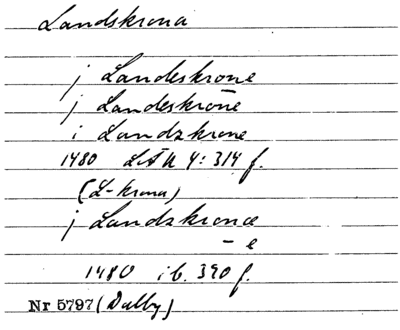 Landskrona
j Landeskrone
j Landeskrōne
i Landzkrone
1480 LÄU 4: 314 f.
(L-krona)
j Landzkronæ
– e
1480 ib. 390 f.
Nr 5797 (Dalby)